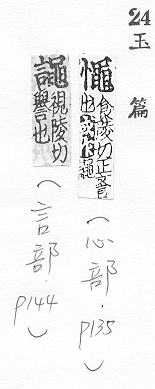 24
玉篇
憴 食陵切
也 譝
(心部.P135)
譝 視陵切
譽也
(言部.P144)